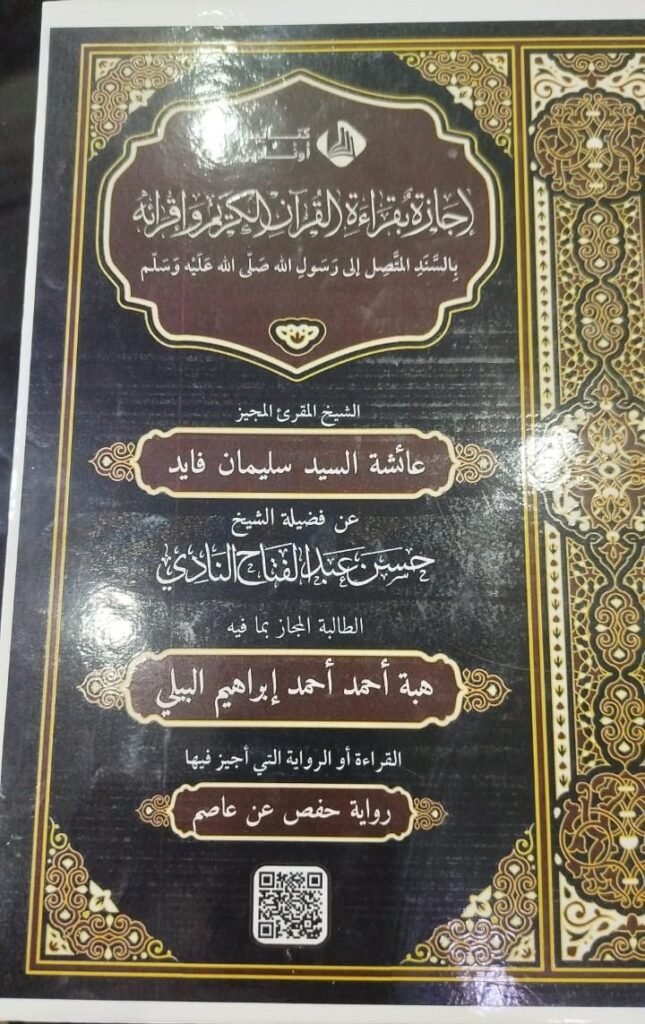 كتاتيب
أونلاين
إجازة بقراءة القرآن الكريم وإقرائه
بِالسَّنَدِ المتَّصِل إلى رَسَولِ الله صَلّى الله عَلَيْه وَسَلّم
الشيخ المقرئ المجيز
عائشة السيد سليمان فايد
عن فضيلة الشيخ
حسين عبد الفتاح النادي
الطالبة المجاز بما فيه
هبة أحمد أحمد إبراهيم البيلي
القراءة أو الرواية التي أجيز فيها
رواية حفص عن عاصم